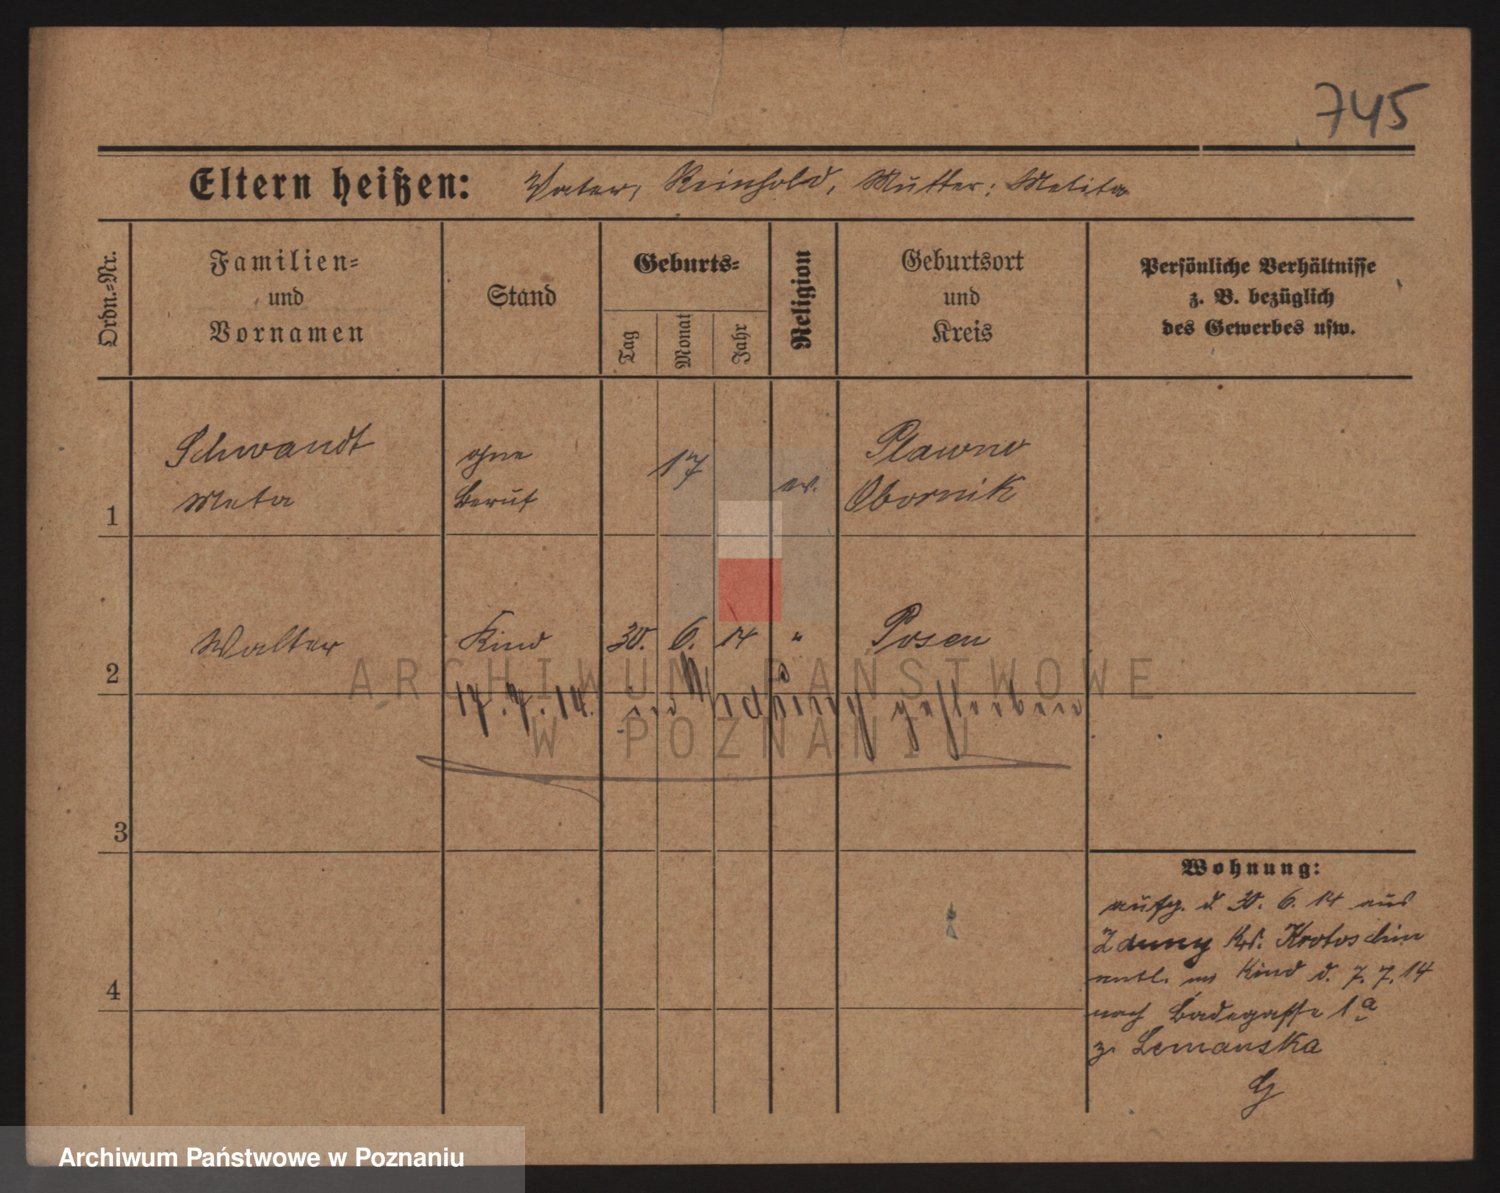 745
Eltern heißen: Vater, Reinhold, Mutter: Melita
Ordn.=Nr.
Familien=
und
Vornamen
Stand
Geburts=
Tag
Monat
Jahr
Religion
Geburtsort
und
Kreis
Persönliche Verhältnisse
z. B. bezüglich
des Gewerbes usw.
1
Schwandt
Meta
ohne
Beruf
17
ev.
Plawno
Obornik
2
Walter
Kind
30. 6. 14
"
Posen
17. 7. 14. in gestorben
3
4
Wohnung:
aufg. d. 30. 6. 14 aus
Zduny Krs. Krotoschin
entl. m Kind d. 7. 7. 14
nach Badegasse 1a
z. Lemanska
G
ARCHIWUM PAŃSTWOWE
W POZNANIU
Archiwum Państwowe w Poznaniu